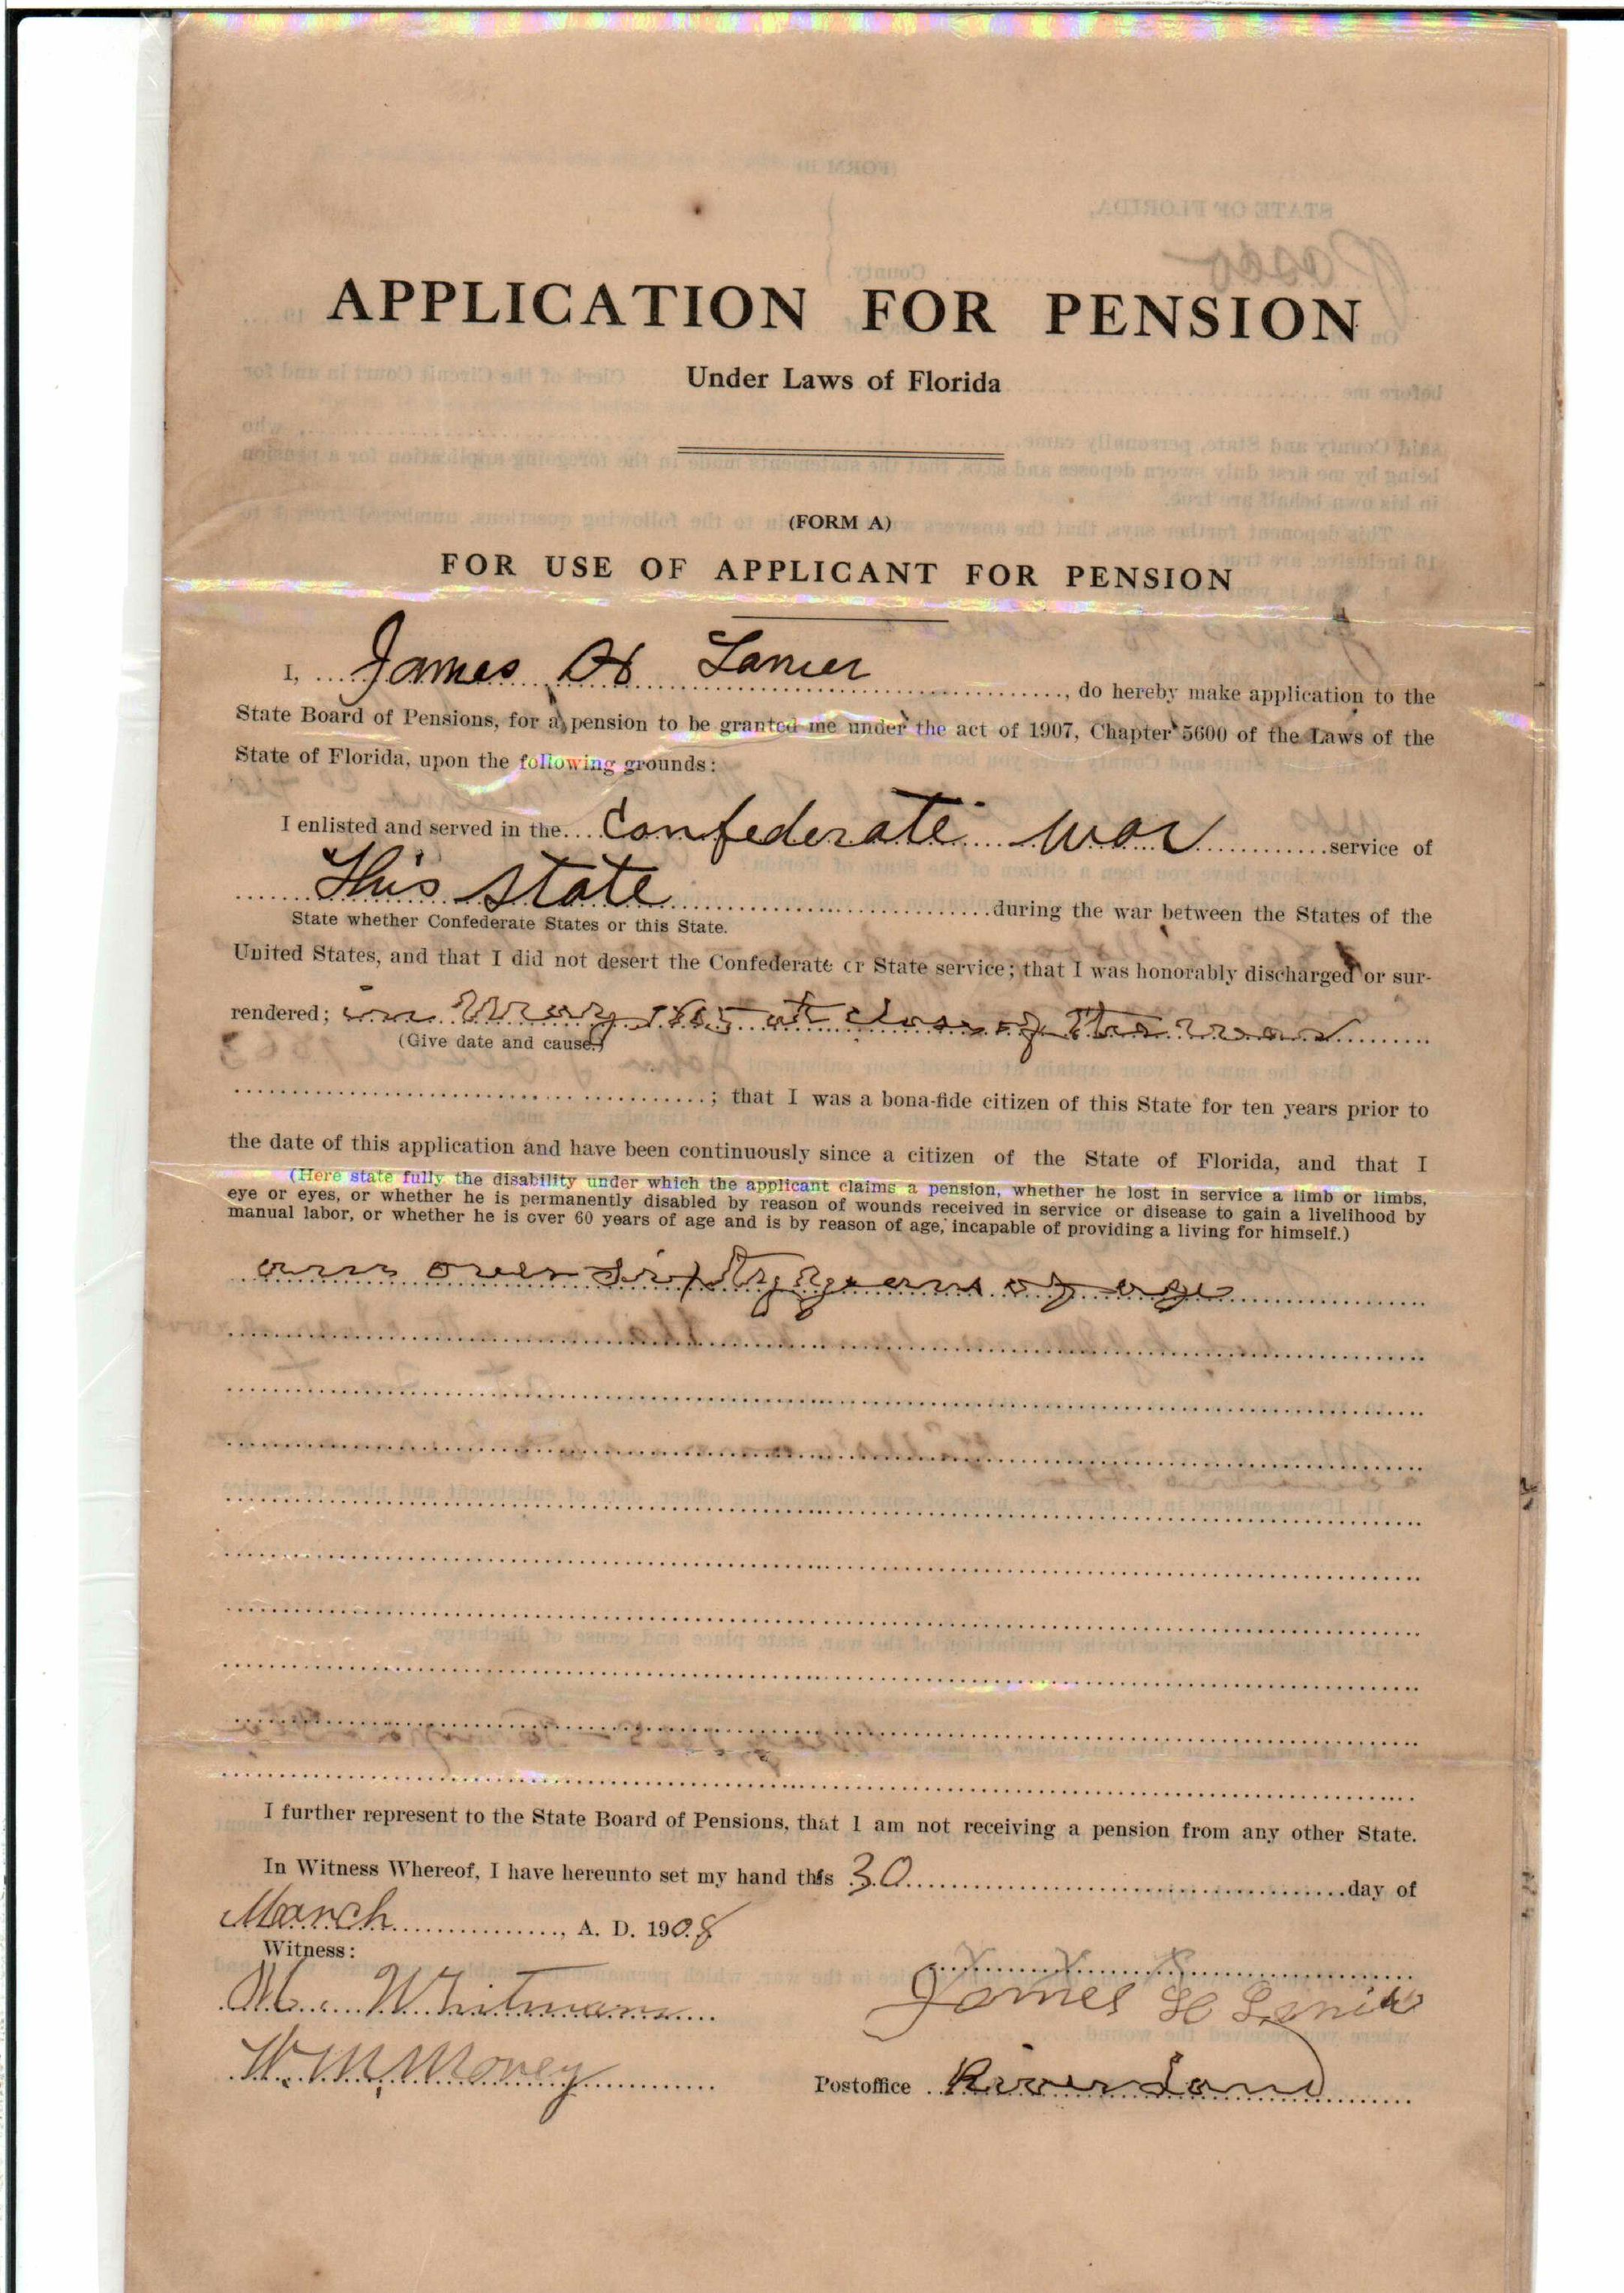 APPLICATION FOR PENSION
Under Laws of Florida
(FORM A)
FOR USE OF APPLICANT FOR PENSION
I, James H Lanier, do hereby make application to the
State Board of Pensions, for a pension to be granted me under the act of 1907, Chapter 5600 of the Laws of the
State of Florida, upon the following grounds:
I enlisted and served in the Confederate war service of
This state during the war between the States of the
State whether Confederate States or this State.
United States, and that I did not desert the Confederate or State service; that I was honorably discharged or sur-
rendered; in May 1865 at close of the war
(Give date and cause.)
; that I was a bona-fide citizen of this State for ten years prior to
the date of this application and have been continuously since a citizen of the State of Florida, and that I
(Here state fully the disability under which the applicant claims a pension, whether he lost in service a limb or limbs,
eye or eyes, or whether he is permanently disabled by reason of wounds received in service or disease to gain a livelihood by
manual labor, or whether he is over 60 years of age and is by reason of age, incapable of providing a living for himself.)
am over sixty years of age
I further represent to the State Board of Pensions, that I am not receiving a pension from any other State.
In Witness Whereof, I have hereunto set my hand this 30 day of
March, A. D. 1908
Witness:
M. Whitman
James H Lanier
W. M. Movey
Postoffice Riverland